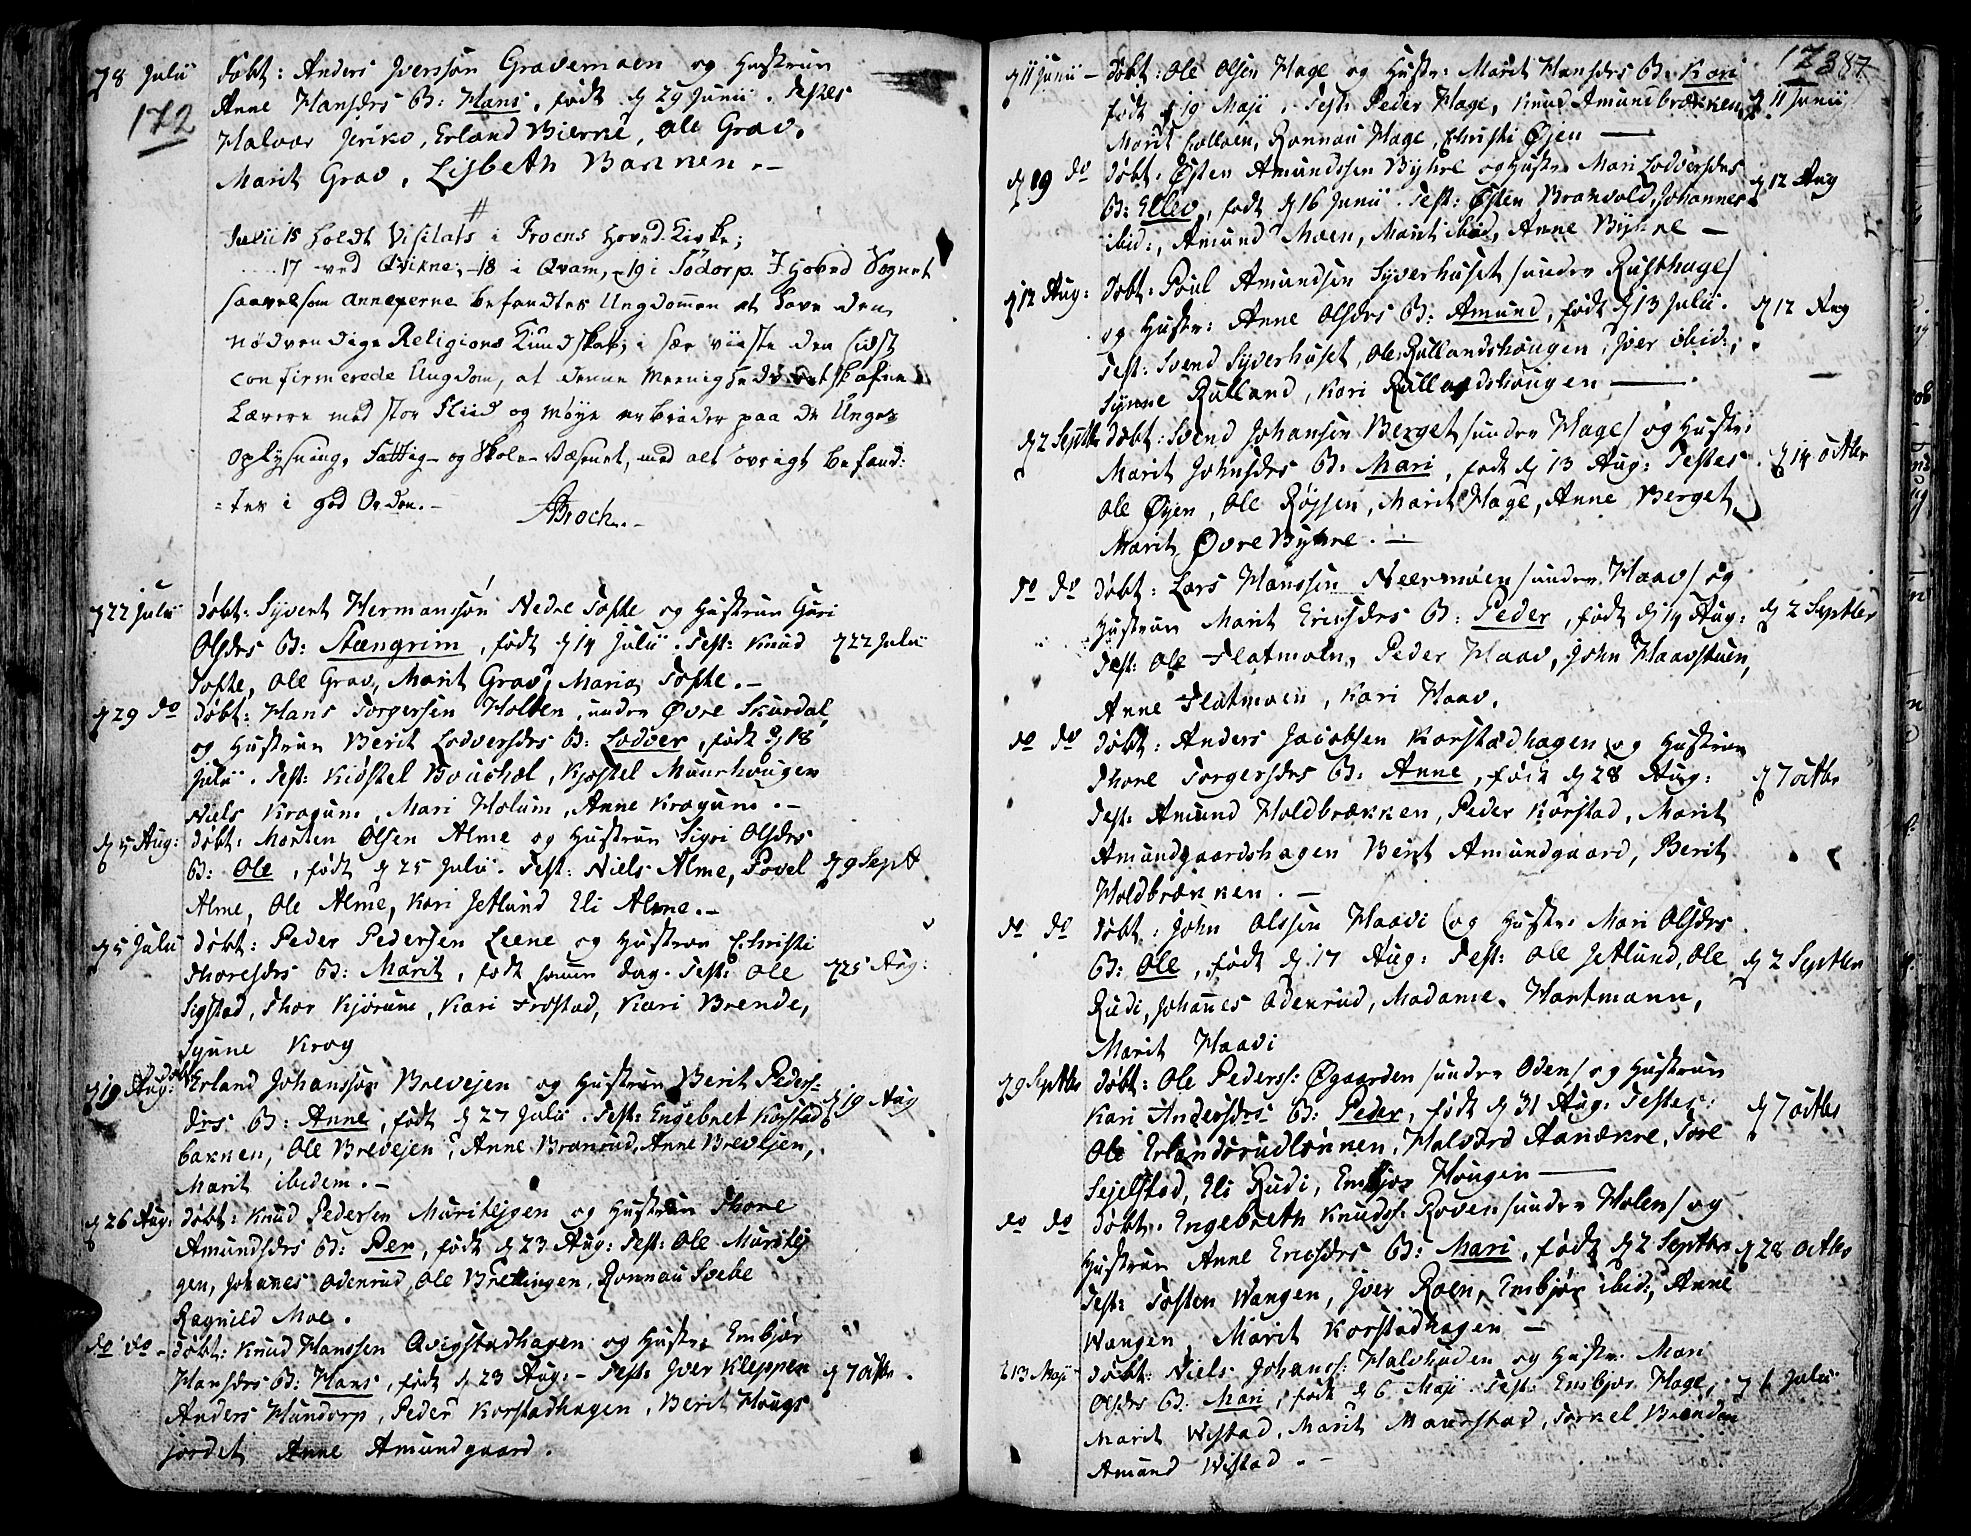 172
d 8 Julii döbt: Anders Iversson Gravemoen og Hustrue
Anne Hansdrs B: Hans, född d 29 Junii. Testes
Halvor Jeriko, Erland Bierne, Ole Grav,
Marit Grav, Lisbeth Bannen.-
Julii 15 holdt Visitats i Froens Hoved-Kirke;
17 ved Qvikne; -18 i Qvam, -19 i Södorp. I Hoved Sognet
saavelsom Annexerne befandtes Ungdommen at have den
nödvendige Religions Kundskab; i sær viiste den sidst
confirmerede Ungdom, at denne Meenigheds
Lærere med stor Fliid og möye arbeider paa de Unges
Oplysning. Fattig- og Skole-Væsenet, med alt övrigt befand:
=tes i god Orden.-
ABroch.-
d 22 Julii döbt: Syvert Hermanssön Nedre Tofte og Hustrue Guri
Olsdrs B: Steengrim, född d 14 Julii. Test: Knud d 22 Julii
Tofte, Ole Grav, Marit Grav, Maria Tofte.-
d 29 do döbt: Hans Torgersen Holten, under Övre Skurdal,
og Hustrue Berit Lodversdrs B: Lodver, född d 18
Julii. Test: Kiöstel Bouskol, Kjöstel Muurhougen
Niels Kragum, Mari Holum, Anne Kragum.-
d 5 Aug: döbt: Morten Olsen Alme og Hustrue Sigri Olsdrs
B: Ole, född d 25 Julii. Test: Niels Alme, Povel d 9 Sept
Alme, Ole Alme, Kari Jetlund Eli Alme.-
d 5 Julii döbt: Peder Pedersen Leene og Hustrue Christi
Thoresdrs B: Marit, född samme dag. Test: Ole d 25 Aug:
Sigstad, Thor Kjörum, Kari Fröstad, Kari Brende,
Synne Krog
d 19 Aug: döbt Erland Johansson Brevejen og Hustrue Berit Peders=
drs B: Anne, född d 27 Julii. Test: Engebret Korstad d 19 Aug
bakken, Ole Brevejen, Anne Branrud, Anne Brevejen,
Marit ibidem.-
d 26 Aug: döbt: Knud Pedersen Muritejgen og Hustrue Thore
Amundsdrs B: Per, född d 23 Aug: Test: Ole Muritej
gen, Johanes Odenrud, Ole Brettingen, Ronnau Svebe
Ragnild Moe.
do do- döbt: Knud Hanssen Qvigstadhagen og Hustr: Embjör
Hansdrs B: Hans, född d 23 Aug:- Test: Iver Kleppen d 7 octbr.
Anders Hundorp, Peder Korstadhagen, Berit Hougs
jordet Anne Amundgaard.
173 87
d 11 Junii - döbt: Ole Olsen Hage og Hustr: Marit Hansdrs B: Kari
född d 19 Maji. Test: Peder Hage, Knud Amundbrækken, d 11 Junii
Marit Colloen, Ronnau Hage, Christi Öjen -
d 19 do döbt: Östen Amundssen Byhre og Hustr: Mari Lodversdrs
B: Ellev, född d 16 Junii. Test: Östen Branvold, Johannes d 12 Aug
ibid:, Amund Moen, Marit ibid, Anne Byhre -
d 12 Aug: döbt: Poul Amundsen Syverhuset /under Rusthage/
og Hustr: Anne Olsdrs B: Amund, född d 13 Julii. d 12 Aug
Test: Svend Syverhuset, Ole Rullandshougen, Iver ibid:,
Synne Rulland, Kari Rullandshougen -
d 2 Septbr döbt: Svend Johansen Berget /under Hage/ og Hustr:
Marit Johnsdrs B: Mari, född d 13 Aug: Testes d 14 octbr
Ole Öjen, Ole Röjsen, Marit Hage, Anne Berget
Marit Övre Byhre.-
do do döbt: Lars Hanssen Neermoen /under Haav/ og
Hustrue Marit Ericsdrs B: Peder, född d 14 Aug: d 2 Septbr
Test: Ole Flatmoen, Peder Haav, John Haavstuen,
Anne Flatmoen, Kari Haav.
do do döbt: Anders Jacobsen Korstadhagen og Hustrue
Thore Torgersdrs B: Anne, född d 28 Aug: d 7 octbr
Test: Amund Holdbrækken, Peder Korstad, Marit
Amundgaardshagen Berit Amundgaard, Berit
Holdbrækken.-
do do döbt: John Olssen Haavi og Hustr: Mari Olsdrs
B: Ole, född d 17 Aug: Test: Ole Jetlund, Ole d 2 Septbr
Rudi, Johannes Odenrud, Madame Hartmann,
Marit Haavi
d 9 Septbr döbt: Ole Peders: Ögaarden /under Oden/ og Hustrue
Kari Andersdrs B: Peder, född d 31 Aug: Testes: d 7 octbr
Ole Erlandsrudlönnen, Halvord Aanekre, Tore
Sejelstad, Eli Rudi, Embjör Hougen -
do do döbt: Engebreth Knuds: Roven /under Holen/ og
Hustrue Anne Ericsdrs B: Mari, född d 2 Septbr d 28 octbr
Test: Tosten Wangen, Iver Roen, Embjör ibid:, Anne
Wangen, Marit Korstadhagen -
d 13 Maji döbt: Niels Johans: Halvhuden og Hustr: Mari
Olsdrs B: Mari, född d 6 Maji Test: Embjör Hage, d 1 Julii
Marit Wistad, Marit Maurstad, Torkel Brenden
Amund Wistad.-